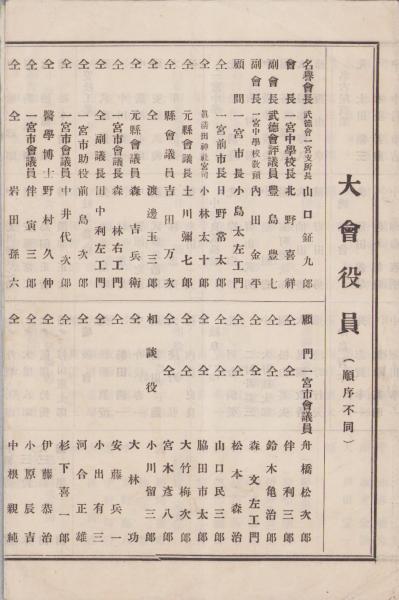 大會役員(順序不同)
名譽會長 武德會一宮支所長 山口鉦九郎
會長 一宮中學校長 北野喜祥
副會長 武德會評議員 豊島豊七
副會長 一宮中學校敎頭 內田金平
顧問 一宮市長 小島太左工門
仝 一宮前市長 日野常太郎
仝 眞淸田神社宮司 小林太十郎
仝 元縣會議長 土川彌七郎
仝 縣會議員 吉田万次
仝 仝 渡邊玉三郎
仝 元縣會議員 森吉兵衛
仝 一宮市會議長 森林右工門
仝 仝副議長 田中利左工門
仝 一宮市助役 前島次郎
仝 一宮市會議員 中井代次郎
仝 醫學博士 野村久伸
仝 一宮市會議員 伴寅三郎
仝 仝 岩田孫六
顧門 一宮市會議員 舟橋松次郎
仝 仝 伴利三郎
仝 仝 鈴木亀治郎
仝 仝 森文左工門
仝 仝 松本森治
仝 仝 山口民三郎
仝 仝 脇田市太郎
仝 仝 大竹梅次郎
仝 仝 宮木彥八郎
相談役 小川留三郎
仝 大林功
仝 安藤兵一
仝 小出有三
仝 河合正雄
仝 杉下喜一郎
仝 伊藤恭治
仝 小原辰吉
仝 中根親純